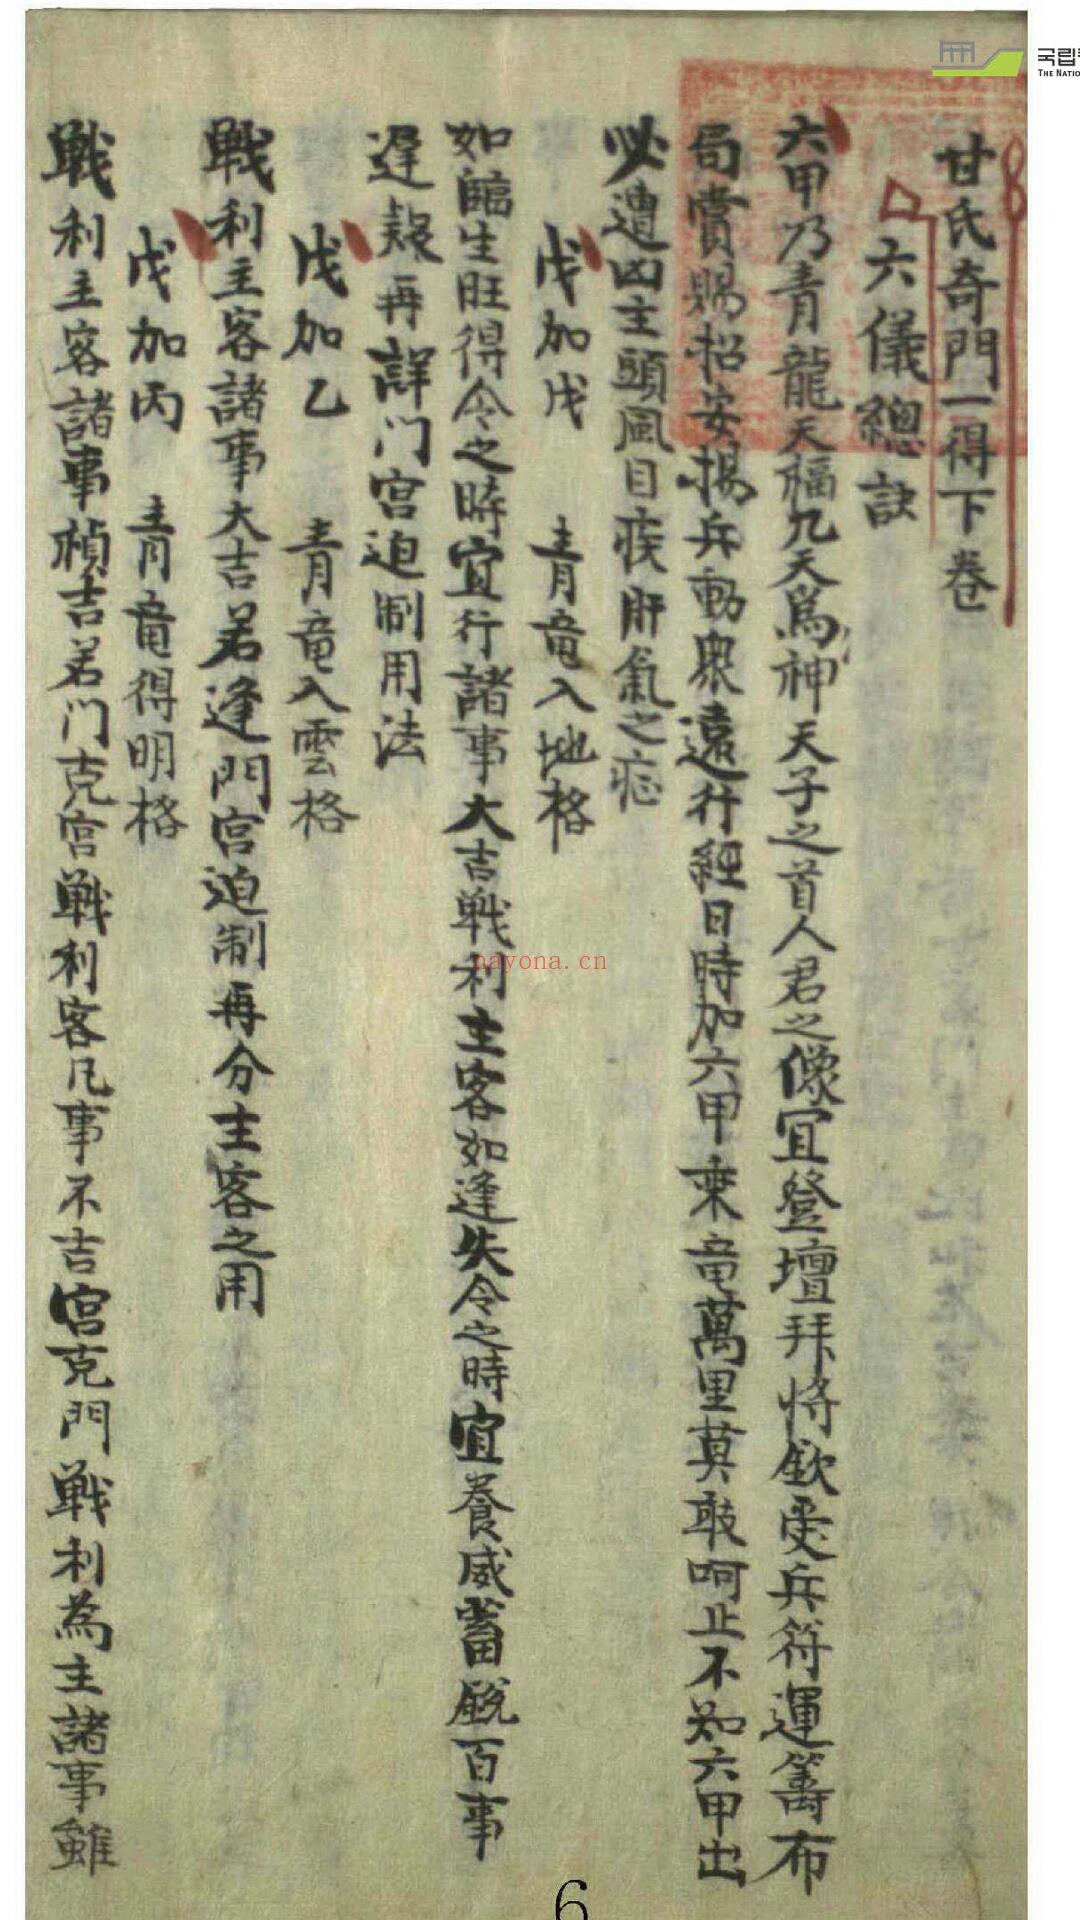 甘氏奇門一得下卷
六儀總訣
六甲乃青龍天福九天為神天子之首人君之像宜登壇拜將欽受兵符運籌布
局賞賜招安揚兵動衆遠行經日時加六甲乗竜萬里莫敢呵止不知六甲出
必遭凶主頭風目疾肝氣之症
戊加戊 青竜入地格
如臨生旺得令之時宜行諸事大吉戦利主客如逢失令之時宜養威蓄銳百事
遲疑再詳门宫迫制用法
戊加乙 青竜入雲格
戰利主客諸事大吉若逢門宫迫制再分主客之用
戊加丙 青竜得明格
戦利主客諸事槙吉若门克宫戦利客凡事不吉宫克門戦利為主諸事雖
国립
THE NATIO
nayona.cn
6